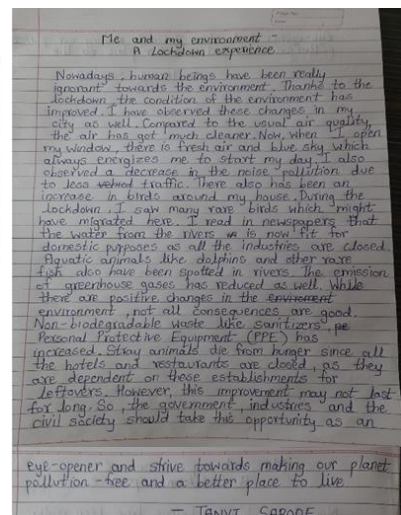 Me and my environment -
A Lockdown experience
Nowadays, human beings have been really
ignorant towards the environment. Thanks to the
lockdown, the condition of the environment has
improved. I have observed these changes in my
city as well. Compared to the usual air quality,
the air has got much cleaner. Now, when I open
my window, there is fresh air and blue sky which
always energizes me to start my day. I also
observed a decrease in the noise pollution due
to less traffic. There also has been an
increase in birds around my house. During the
lockdown, I saw many rare birds which might
have migrated here. I read in newspapers that
the water from the rivers is now fit for
domestic purposes as all the industries are closed.
Aquatic animals like dolphins and other rare
fish also have been spotted in rivers. The emission
of greenhouse gases has reduced as well. While
there are positive changes in the enviroment
environment, not all consequences are good.
Non-biodegradable waste like sanitizers,
Personal Protective Equipment (PPE) has
increased. Stray animals die from hunger since all
the hotels and restaurants are closed, as they
are dependent on these establishments for
leftovers. However, this improvement may not last
for long. So, the government, industries and the
civil society should take this opportunity as an
eye-opener and strive towards making our planet
pollution-free and a better place to live